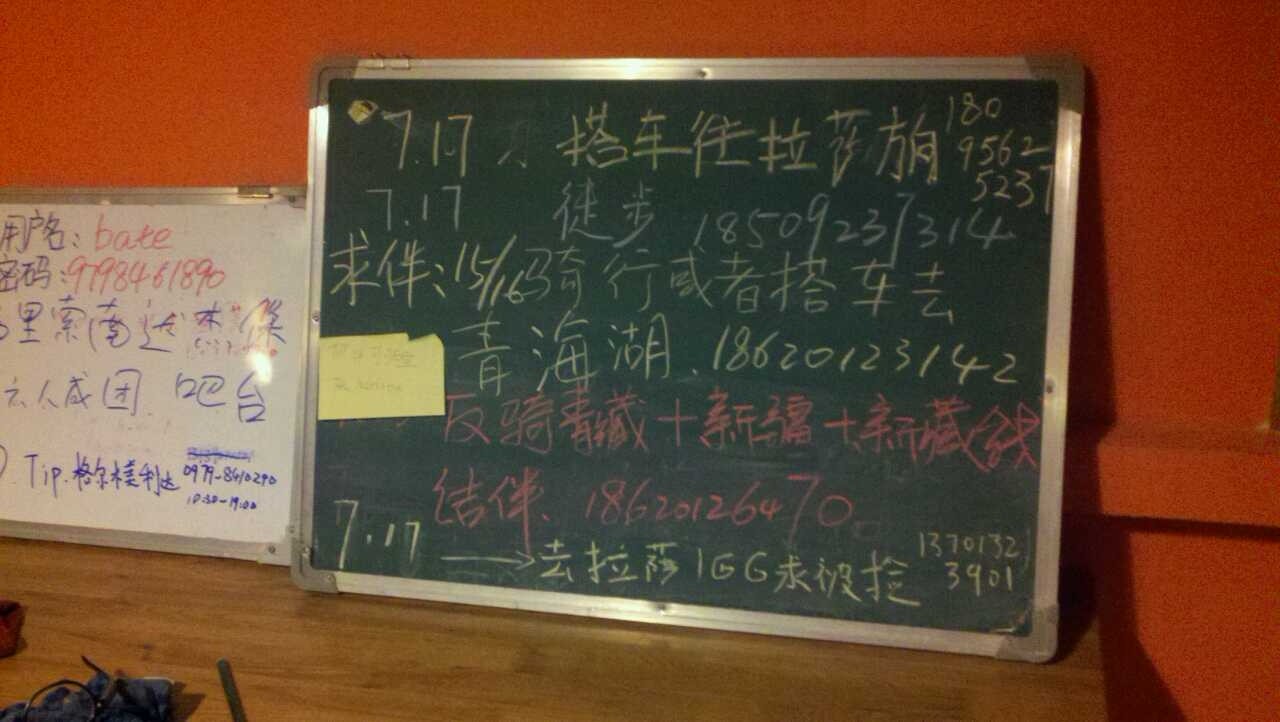 用户名：bate
密码：9798461890
里索南达杰保
六人成团．吧台
Tip．格尔木美利达 0979-8410290
10:30-19:00
7.17 搭车往拉萨 180
9562
5237
7.17 徒步 18509237314
求伴：15/16骑行或者搭车去
青海湖．18620123142
反骑青藏+新疆+新藏线
结伴．18620126470
7.17 →去拉萨1GG求被捡 1370132
3901